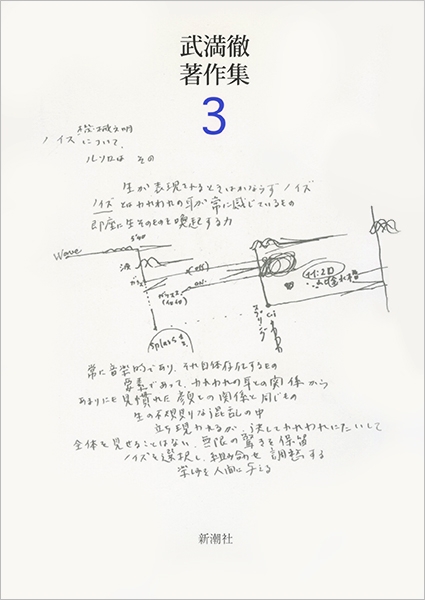 武満徹
著作集
3
機械文明
ノイズについて.
ルソロは その
生が表現されるときはかならずノイズ
ノイズとはわれわれの耳が常に感じているもの
即座に生そのものを喚起する力
Wave
波
splash
常に音楽的であり、それ自体存在するもの
要素であって、われわれの耳との関係から
あまりにも見慣れた顔との関係と同じもの
生の不規則な混乱の中
立ち現われるが、決してわれわれにたいして
全体を見せることはない、無限の驚きを保留
ノイズを選択し、組み合わせ 調整する
楽しみを人間に与える
新潮社